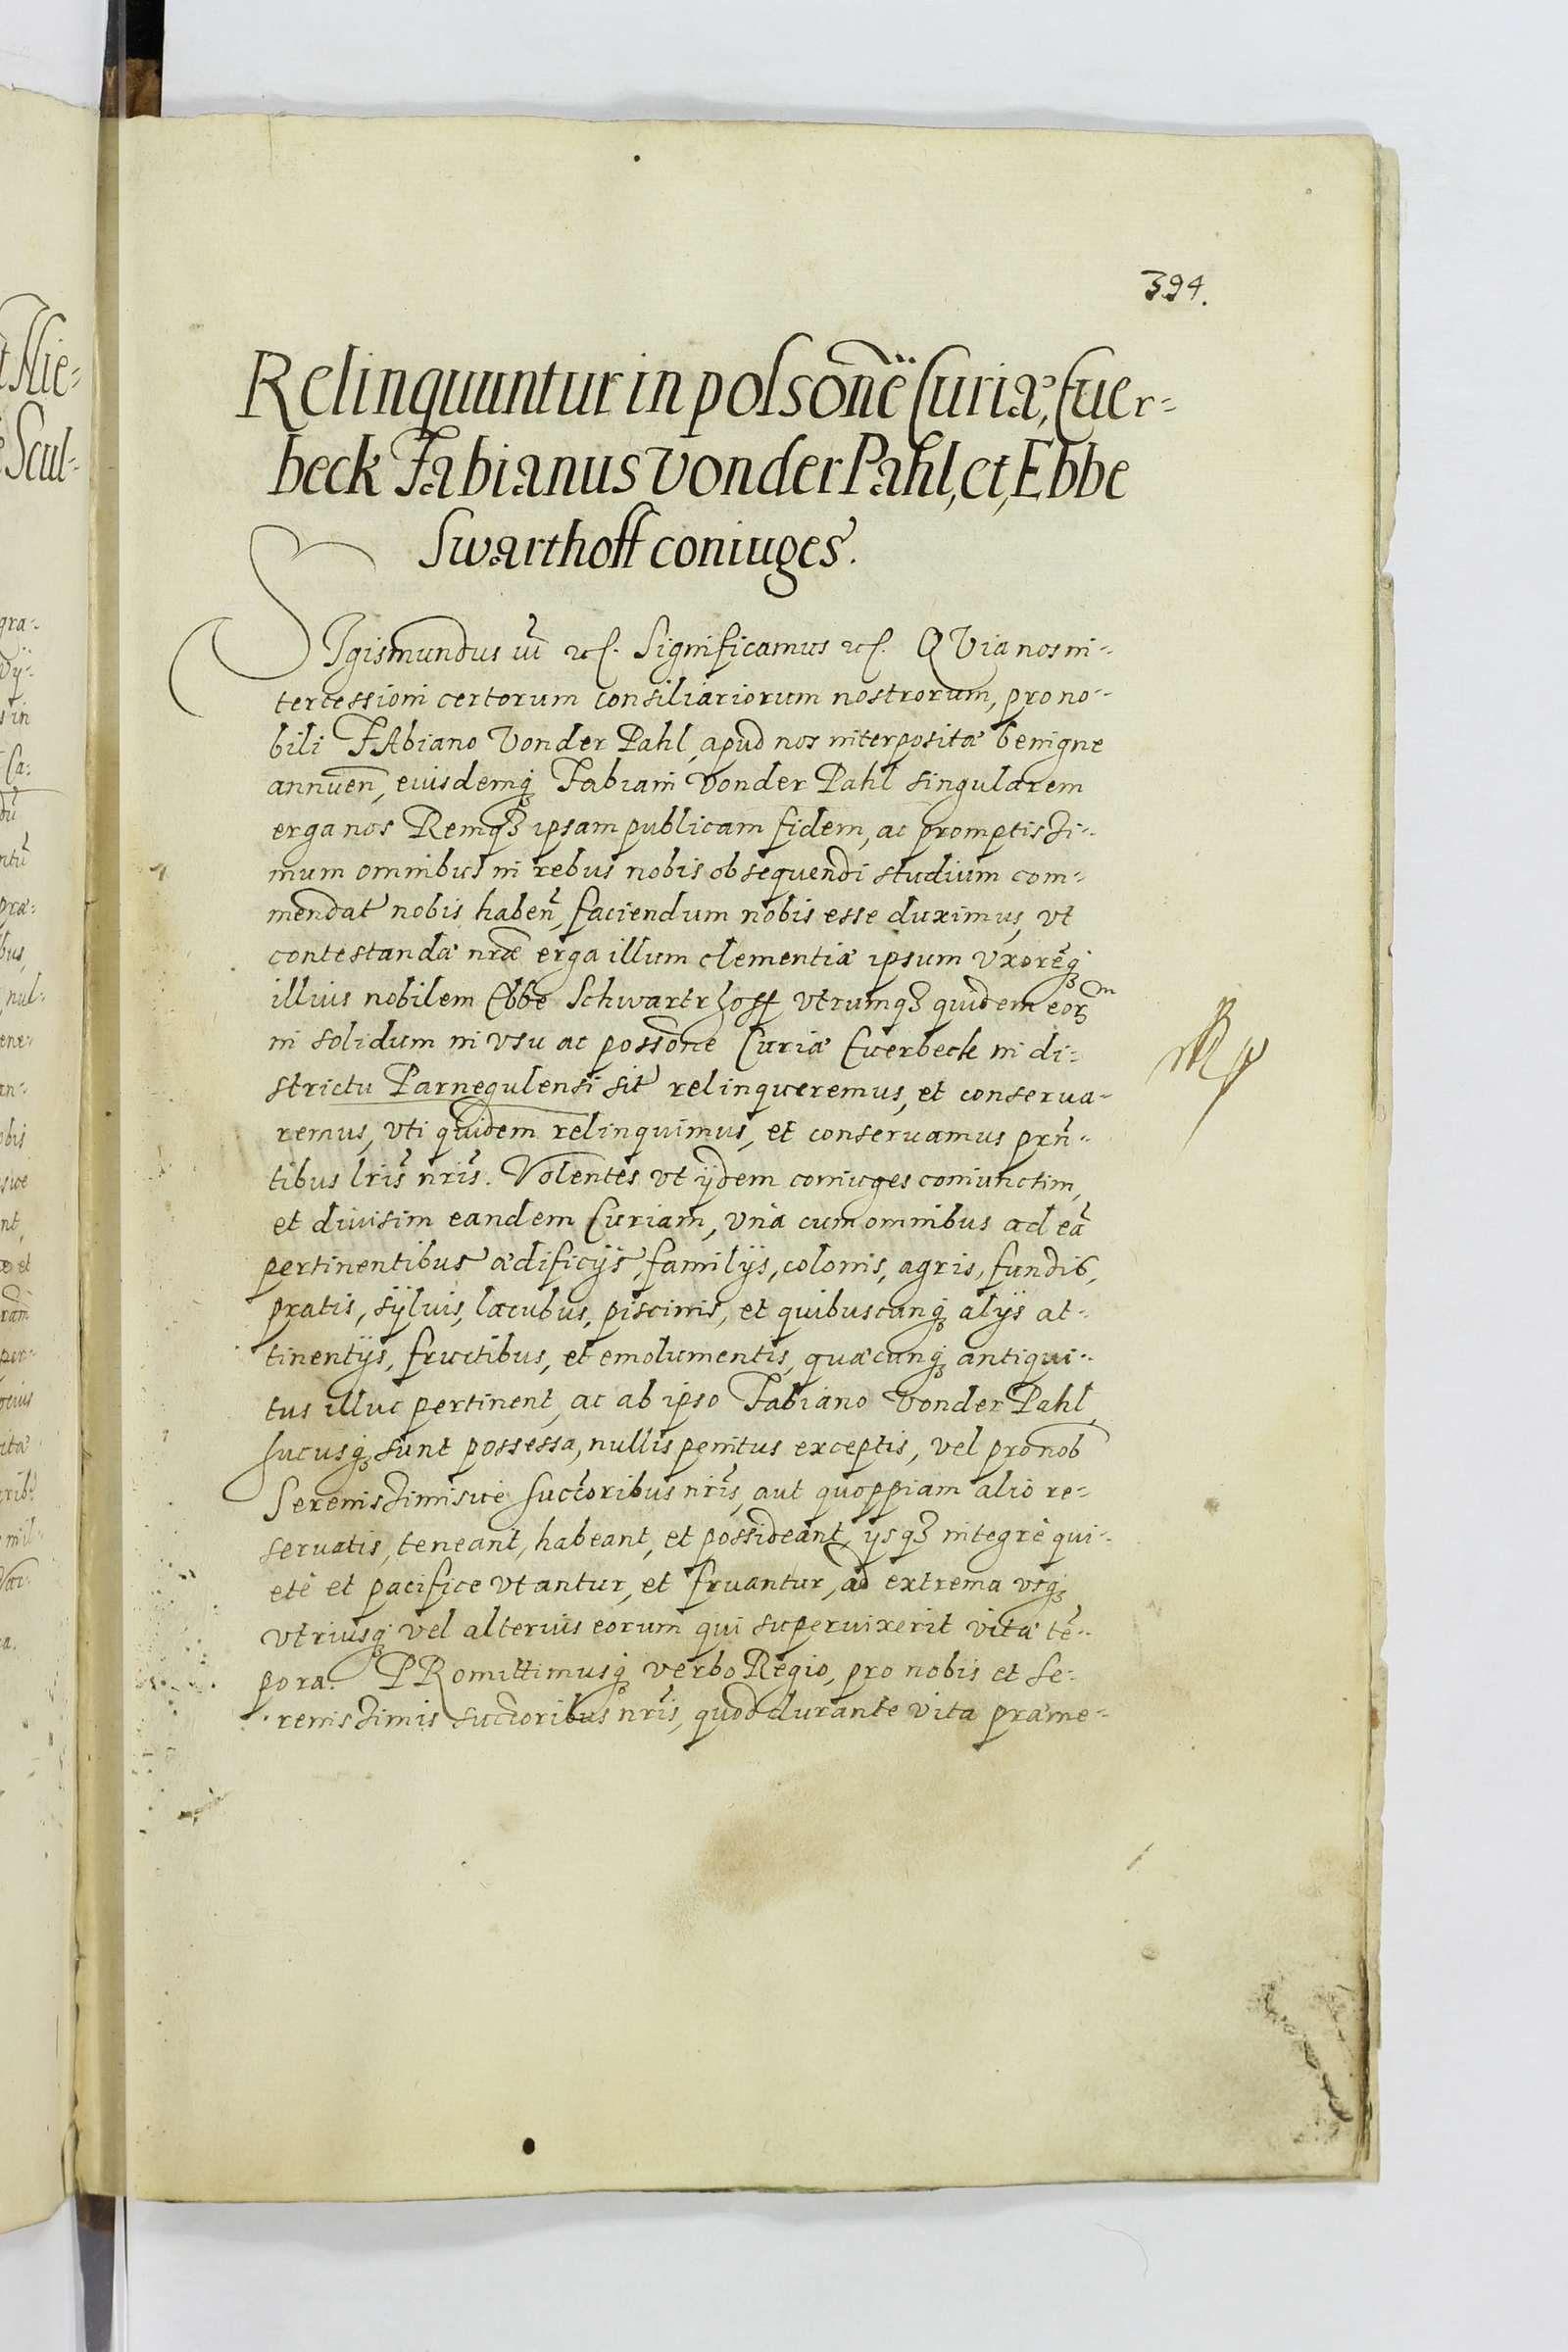 394.
Relinquuntur in possonē Curiæ, Euer-
beck Fabianus vonder Pahl, et, Ebbe
Swarthoff coniuges.
SIgismundus iii etc. Significamus etc. QVia nos in-
tercessioni certorum consiliariorum nostrorum, pro no-
bili FAbiano Vonder Pahl, apud nos interpositæ benigne
annuen, eiusdemq̃ Fabiani Vonder Pahl singularem
erga nos Remq3 ipsam publicam fidem, ac promptissi-
mum omnibus in rebus nobis obsequendi studium com-
mendat nobis haben, faciendum nobis esse duximus, vt
contestandæ nræ erga illum clementiæ ipsum vxorēq̃
illius nobilem Ebbe Schwartzhoff vtrumq3 quidem eor m
in solidum in vsu ac possone Curiæ Euerbeck in di-
strictu Parnegulensi sit relinqueremus, et conserua-
remus, vti quidem relinquimus, et conseruamus prñ-
tibus lris nris. Volentes vt ijdem coniuges coniunctim,
et diuisim eandem Curiam, vnà cum omnibus ad eã
pertinentibus ædificijs, familijs, colonis, agris, fundis,
pratis, syluis, lacubus, piscinis, et quibuscunq̃ alijs at-
tinentijs, fructibus, et emolumentis, quæcunq̃ antiqui-
tus illuc pertinent, ac ab ipso Fabiano Vonder Pahl
hucusq̃ sunt possessa, nullis penitus exceptis, vel pro nob
Serenissimisue succoribus nris, aut quoppiam alio re-
seruatis, teneant, habeant, et possideant, ijsq3 integrè qui-
etè et pacifice vtantur, et fruantur, ad extrema vsq̃
vtriusq̃ vel alterius eorum qui superuixerit vitæ tē-
pora. PRomittimusq̃ verbo Regio, pro nobis et Se-
renissimis succoribus nris, quod durante vita præme-